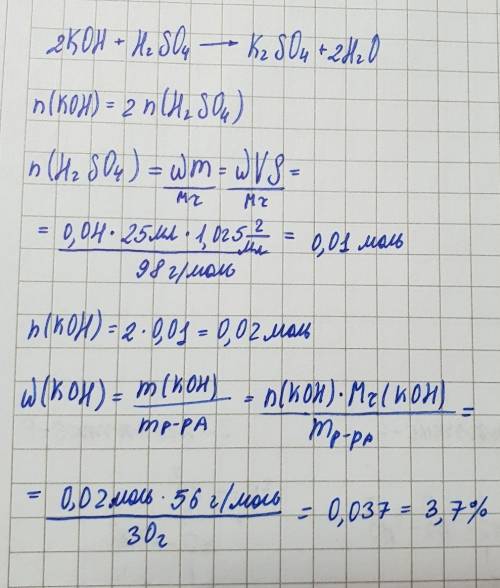 2KOH + H₂SO₄ → K₂SO₄ + 2H₂O
n(KOH) = 2 n(H₂SO₄)
n(H₂SO₄) = ωm/Mr = ωVρ/Mr =
= 0,04 · 25мл · 1,025 г/мл / 98 г/моль = 0,01 моль
n(KOH) = 2 · 0,01 = 0,02 моль
ω(KOH) = m(KOH)/mр-рА = n(KOH) · Mr(KOH)/mр-рА =
= 0,02 моль · 56 г/моль / 30г = 0,037 = 3,7%